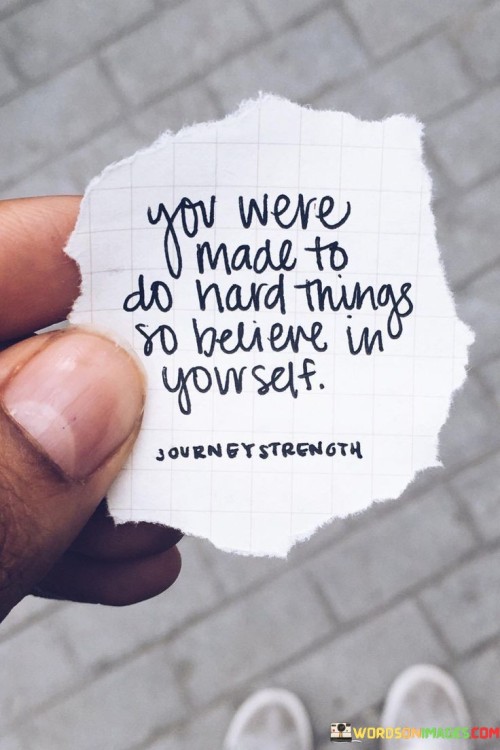 you were
made to
do hard things
so believe in
yourself.
JOURNEYSTRENGTH
WORDSONIMAGES.COM